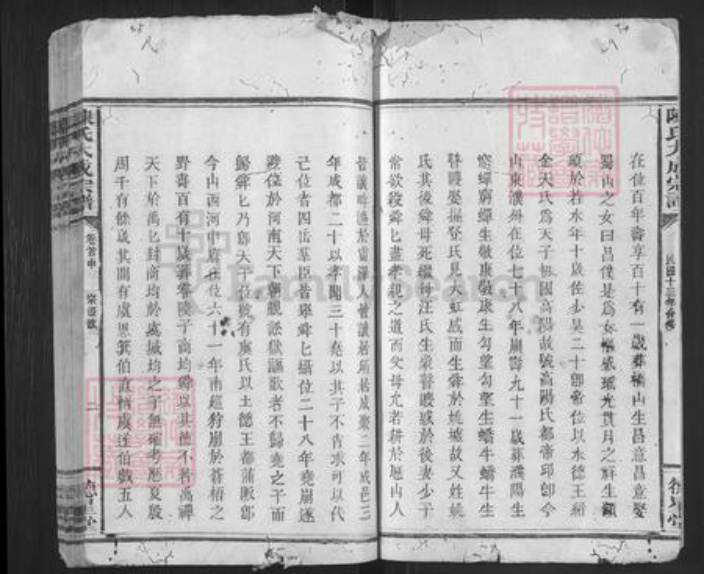 陳氏大成宗譜
民國十三年合修
在位百年壽享百十有一歲葬橋山生昌意昌意娶
蜀山之女曰昌僕是爲女樞感瑤光貫月之祥生顓
頊於若水年十歲佐少昊二十卽帝位以水德王紹
金天氏爲天子初國高陽故號高陽氏都帝邱卽今
山東濮州在位七十八年崩壽九十一歲葬濮陽生
窮蟬窮蟬生敬康敬康生勾望勾望生蟜牛蟜牛生
瞽瞍娶握登氏見大虹感而生舜於姚墟故又姓姚
氏其後舜母死繼母汪氏生象瞽瞍惑於後妻少子
常欲殺舜舜匕盡孝親之道而父母允若耕於歷山人
皆讓畔漁於雷澤人皆讓居所居成聚二年成邑三
年成都二十以孝聞三十堯以其子不肖求可以代
己位者四岳羣臣皆薦舜匕攝位二十八年堯崩遂
避位於河南天下朝覲訟獄謳歌者不歸堯之子而
歸舜匕乃卽天子位號有虞氏以土德王都蒲阪卽
今山西河中府在位六十一年南巡狩崩於蒼梧之
野壽百有十歲葬零陵子商均舜以其德不若禹禪
天下於禹匕封商均於虞城均之子無確考歷夏殷
周千有餘歲其間有虞思箕伯直柄虞遂伯戲五人
陳氏大成宗譜
卷首中
二